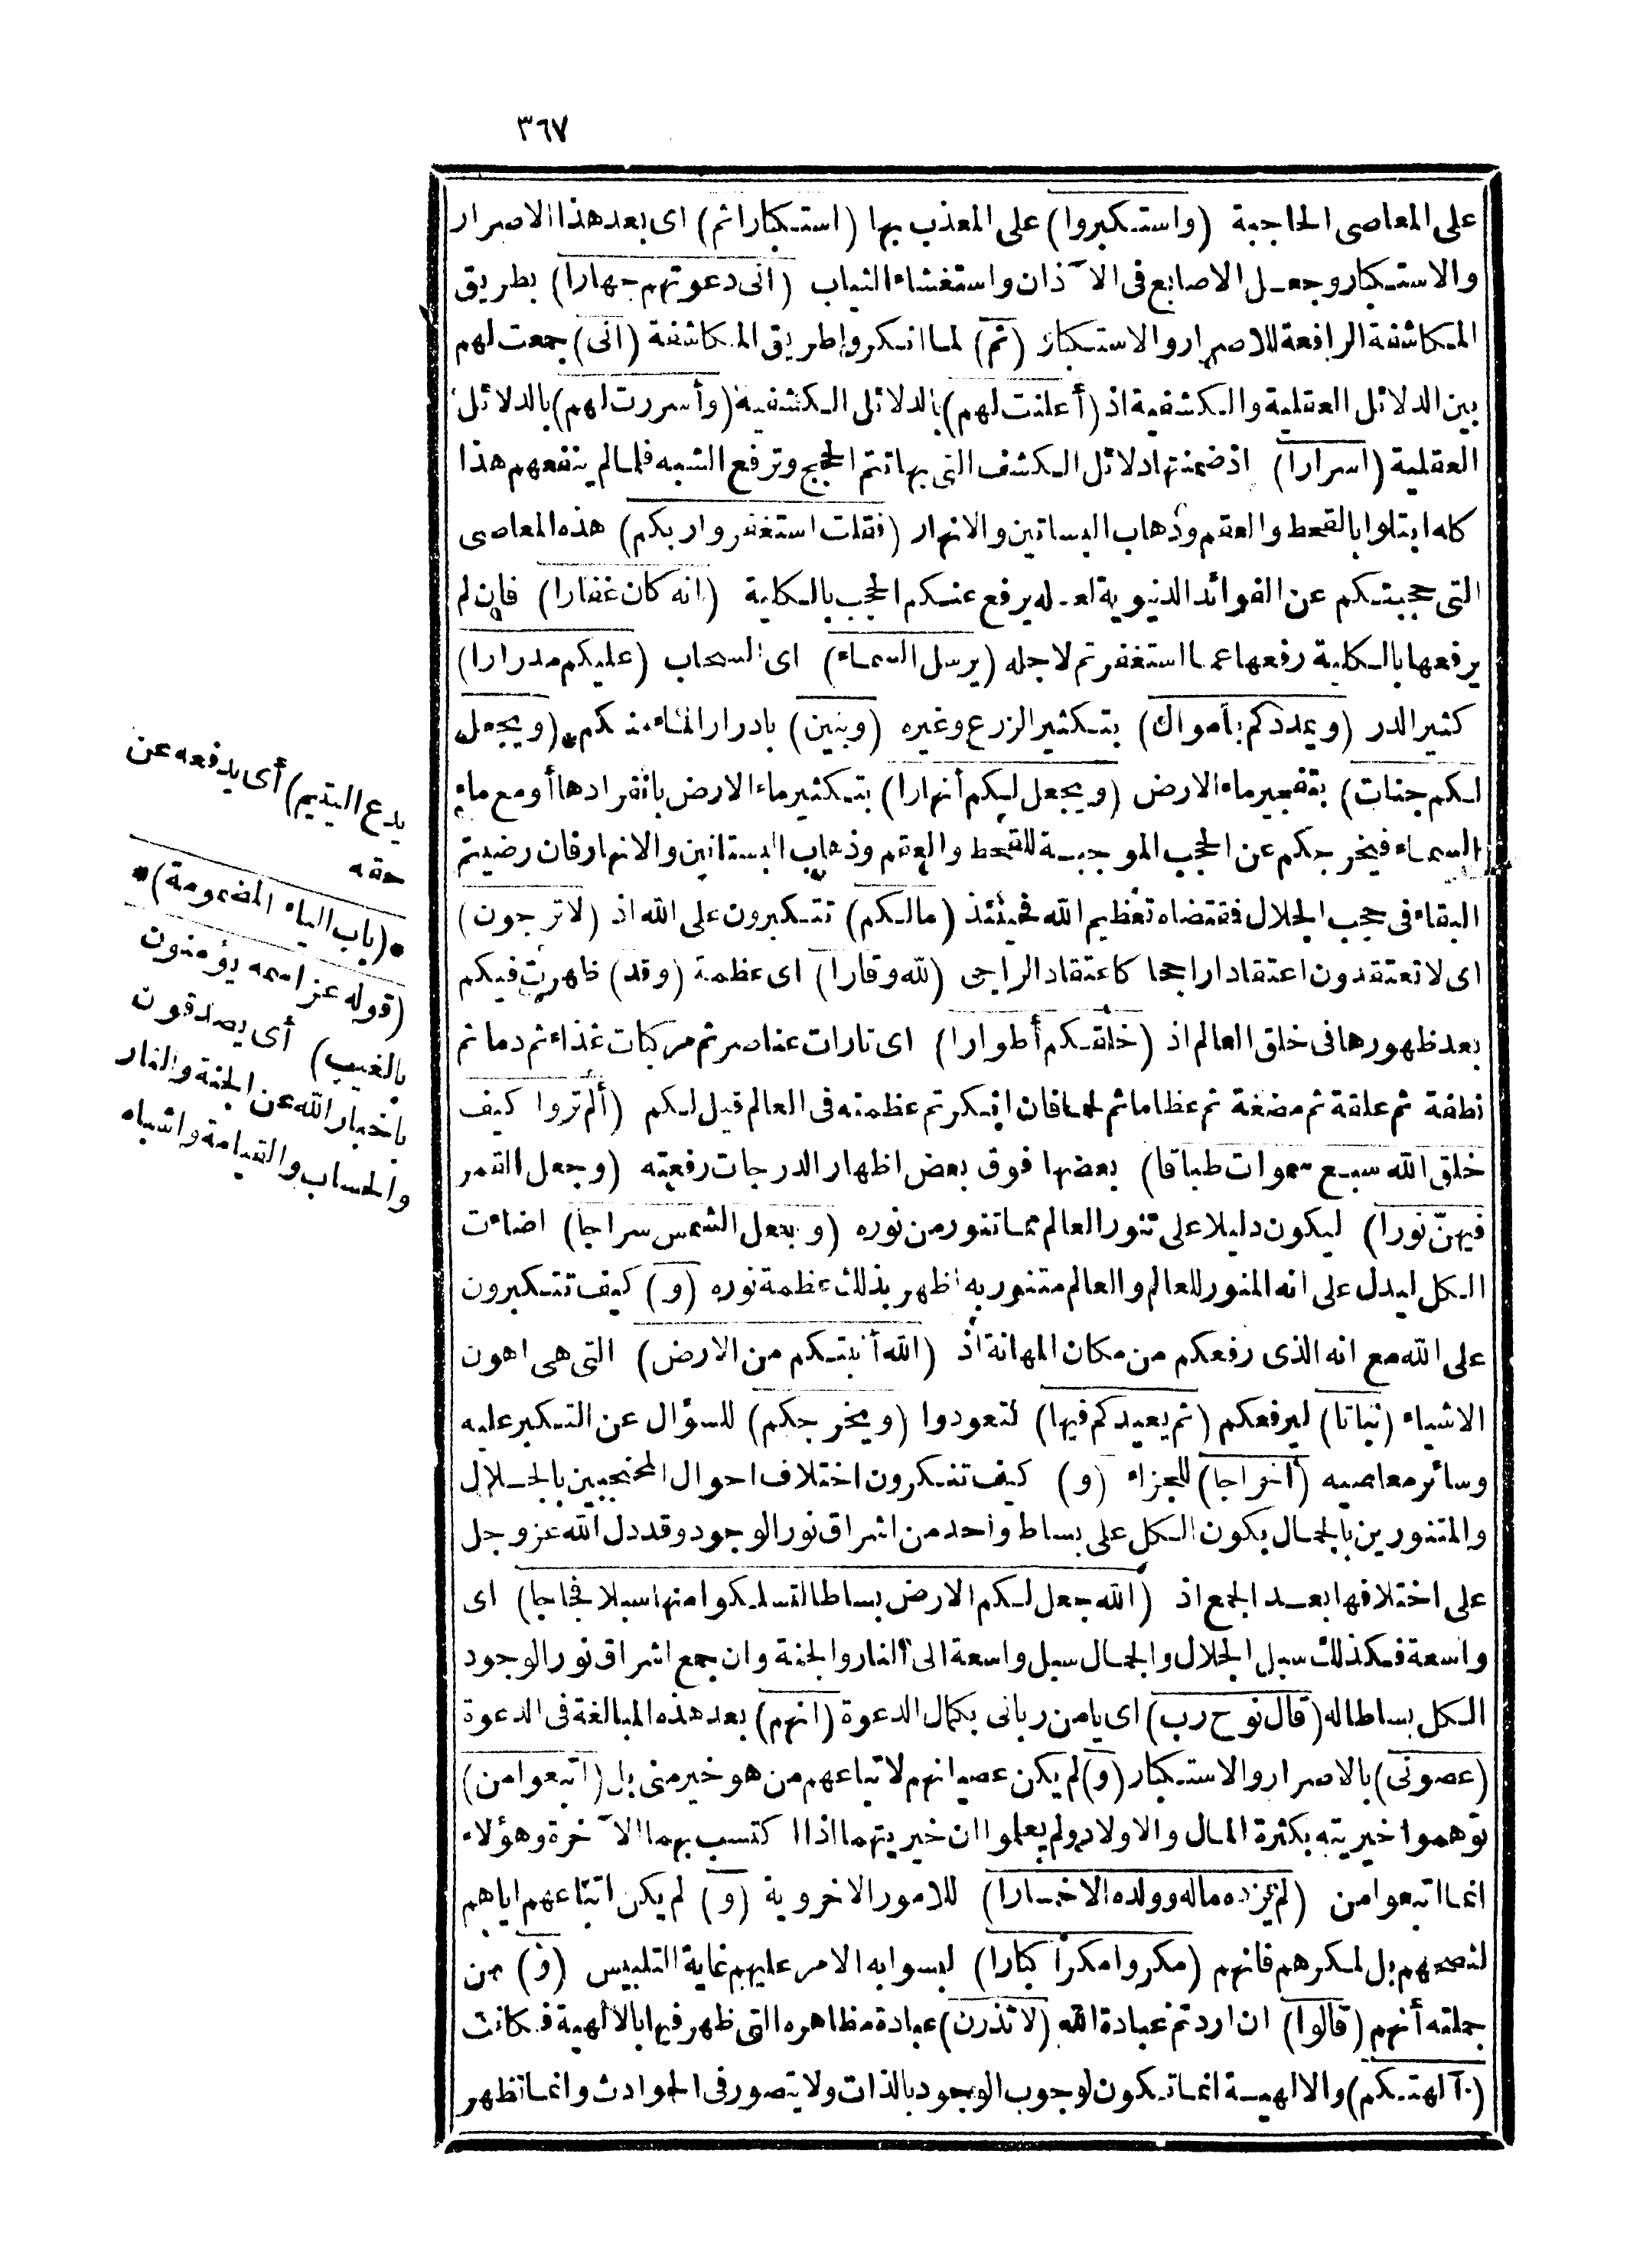 ٣٦٧
على المعاصى الحاجبة (واستكبروا) على المعذب بها (استكبارا ثم) اى بعد هذا الاصرار
والاستكبار وجعل الاصابع فى الآذان واستغشاء الثياب (انى دعوتهم جهارا) بطريق
المكاشفة الرافعة للاصرار والاستكبار (ثم) لما انكروا طريق المكاشفة (انى) جمعت لهم
بين الدلائل العقلية والكشفية اذ (أعلنت لهم) بالدلائل الكشفية (وأسررت لهم) بالدلائل
العقلية (اسرارا) اذ ضمنتها دلائل الكشف التى بها تتم الحجج وترفع الشبه فلما لم ينفعهم هذا
كله ابتلوا بالقحط والعقم وذهاب البساتين والانهار (فقلت استغفروا ربكم) هذه المعاصى
التى حجبتكم عن الفوائد الدنيوية لعله يرفع عنكم الحجب بالكلية (انه كان غفارا) فان لم
يرفعها بالكلية رفعها عما استغفرتم لاجله (يرسل السماء) اى السحاب (عليكم مدرارا)
كثير الدر (ويمددكم بأموال) بتكثير الزرع وغيره (وبنين) بادرار الماء منكم (ويجعل
لكم جنات) بتفجير ماء الارض (ويجعل لكم أنهارا) بتكثير ماء الارض بانفرادها أو مع ماء
السماء فيخرجكم عن الحجب الموجبة للقحط والعقم وذهاب البساتين والانهار فان رضيتم
البقاء فى حجب الجلال فمقتضاه تعظيم الله فحينئذ (مالكم) تتكبرون على الله اذ (لا ترجون)
اى لا تعتقدون اعتقادا راجحا كاعتقاد الراجى (لله وقارا) اى عظمة (وقد) ظهرت فيكم
بعد ظهورها فى خلق العالم اذ (خلقكم أطوارا) اى تارات عناصر ثم مركبات غذاء ثم دما ثم
نطفة ثم علقة ثم مضغة ثم عظاما ثم لحما فان انكرتم عظمته فى العالم قيل لكم (ألم تروا كيف
خلق الله سبع سموات طباقا) بعضها فوق بعض اظهار الدرجات رفعته (وجعل القمر
فيهنّ نورا) ليكون دليلا على تنور العالم مما تنور من نوره (وجعل الشمس سراجا) اضاءت
الكل ليدل على انه المنور للعالم والعالم متنور به اظهر بذلك عظمة نوره (و) كيف تتكبرون
على الله مع انه الذى رفعكم من مكان المهانة اذ (الله أنبتكم من الارض) التى هى اهون
الاشياء (نباتا) ليرفعكم (ثم يعيدكم فيها) لتعودوا (ويخرجكم) للسؤال عن التكبر عليه
وسائر معاصيه (اخراجا) للجزاء (و) كيف تنكرون اختلاف احوال المحتجبين بالجلال
والمتنورين بالجمال بكون الكل على بساط واحد من اشراق نور الوجود وقد دل الله عز وجل
على اختلافها بعد الجمع اذ (الله جعل لكم الارض بساطا لتسلكوا منها سبلا فجاجا) اى
واسعة فكذلك سبل الجلال والجمال سبل واسعة الى النار والجنة وان جمع اشراق نور الوجود
الكل بساطا له (قال نوح رب) اى يا من ربانى بكمال الدعوة (انهم) بعد هذه المبالغة فى الدعوة
(عصونى) بالاصرار والاستكبار (و) لم يكن عصيانهم لاتباعهم من هو خير منى بل (اتبعوا من)
توهموا خيريته بكثرة المال والاولاد ولم يعلموا ان خيريتهما اذا اكتسب بهما الآخرة وهؤلاء
انما اتبعوا من (لم يزده ماله وولده الا خسارا) للامور الاخروية (و) لم يكن اتباعهم اياهم
لنصحهم بل لمكرهم فانهم (مكروا مكرا كبارا) لبسوا به الامر عليهم غاية التلبيس (و) من
جملته أنهم (قالوا) ان اردتم عبادة الله (لا تذرن) عبادة مظاهره التى ظهر فيها بالالهية فكانت
(آلهتكم) والالهية انما تكون لوجوب الوجود بالذات ولا يتصور فى الحوادث وانما تظهر
يدع اليتيم) أى يدفعه عن
حقه
*(باب الياء المضمومة)*
(قوله عز اسمه يؤمنون
بالغيب) أى يصدقون
باخبار الله عن الجنة والنار
والحساب والقيامة واشباه